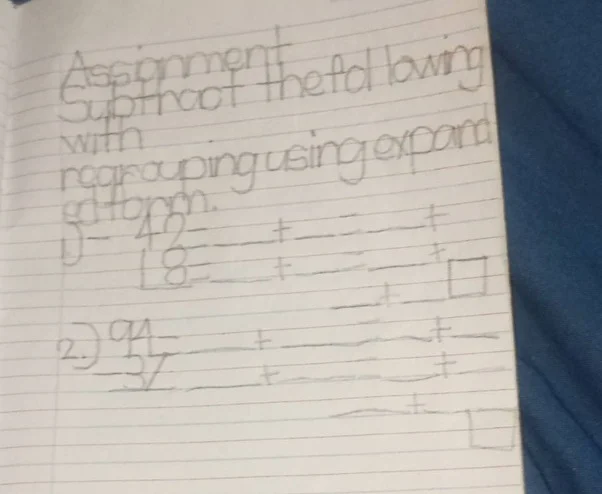 Assignment
Subthact the following
with
regrouping using expand
ed form.
1) - 42 = ___ + ___ = ___ +
18 = ___ + ___ = ___ +
___ + ___ □
2.) 94 = ___ + ___ = ___ + ___
- 37 ___ + ___ = ___ + ___
___ + ___
□